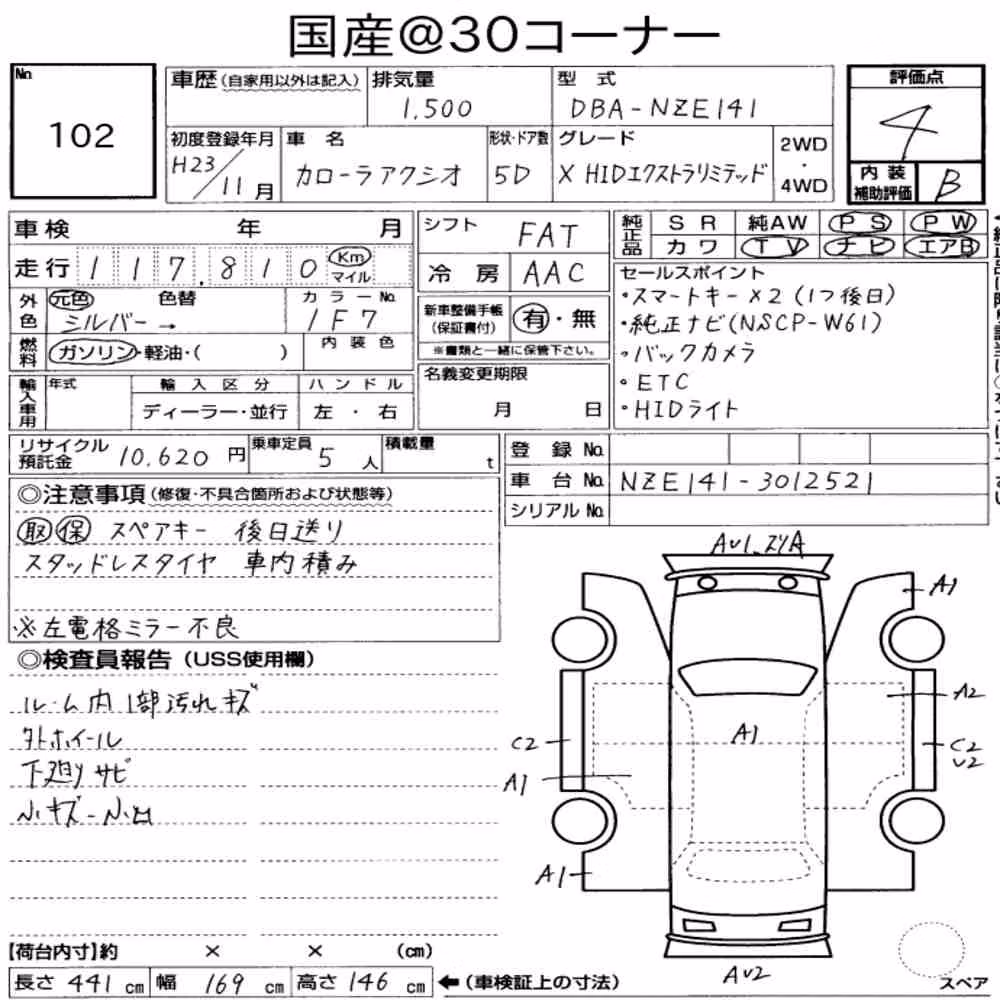 国産@30コーナー
No.
102
車歴(自家用以外は記入)
排気量
1,500
型式
DBA-NZE141
評価点
4
初度登録年月
H23/11月
車名
カローラアクシオ
形状・ドア数
5D
グレード
X HIDエクストラリミテッド
2WD
・
4WD
内装
補助評価
B
車検 年 月
走行 117,810 Km マイル
シフト
FAT
冷房 AAC
純正品
SR 純AW PS PW
カワ TV ナビ エアB
外色
元色 色替
シルバー →
カラーNo.
1F7
内装色
燃料
ガソリン・軽油・( )
新車整備手帳
(保証書付)
有・無
※書類と一緒に保管下さい。
セールスポイント
・スマートキー×2(1つ後日)
・純正ナビ(NSCP-W61)
・バックカメラ
・ETC
・HIDライト
輸入車用
年式
輸入区分
ディーラー・並行
ハンドル
左・右
名義変更期限
月 日
リサイクル
預託金 10,620円
乗車定員
5人
積載量
t
登録No.
車台No. NZE141-3012521
シリアルNo.
◎注意事項(修復・不具合箇所および状態等)
取 保 スペアキー 後日送り
スタッドレスタイヤ 車内積み
※左電格ミラー不良
◎検査員報告(USS使用欄)
ルーム内1部汚れキズ
外ホイール
下廻りサビ
小キズ-小凹
A1
A2
C2
A1
C2
U2
A1
A1
AU2
スペア
【荷台内寸】約 × × (cm)
長さ 441cm 幅 169cm 高さ 146cm ←(車検証上の寸法)